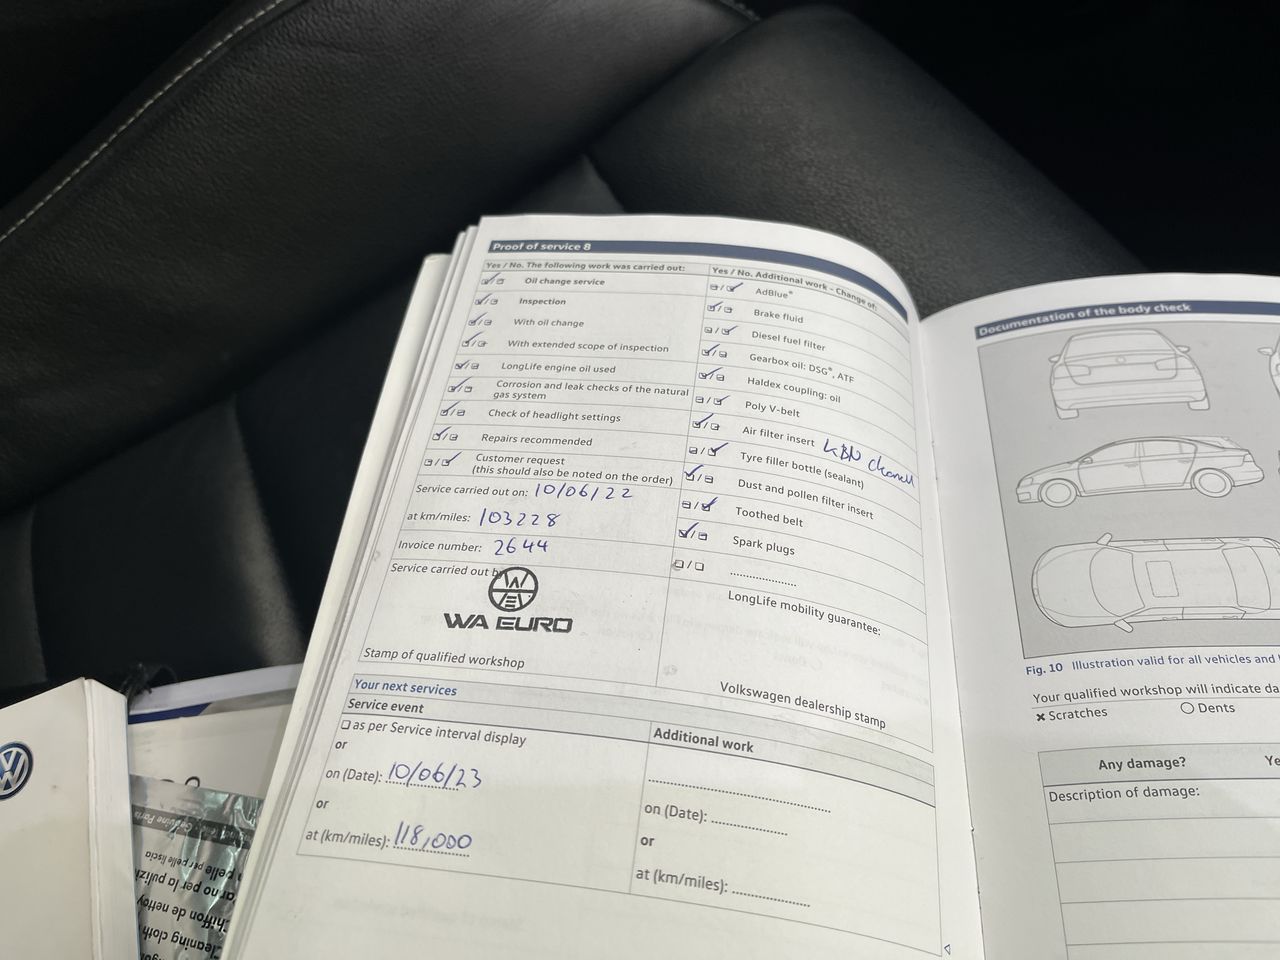 Proof of service 8
Yes / No. The following work was carried out:
Oil change service
Inspection
With oil change
With extended scope of inspection
LongLife engine oil used
Corrosion and leak checks of the natural
gas system
Check of headlight settings
Repairs recommended
Customer request
(this should also be noted on the order)
Service carried out on: 10/06/22
at km/miles: 103228
Invoice number: 2644
Service carried out by
WA EURO
Stamp of qualified workshop
Yes / No. Additional work - Change of:
AdBlue®
Brake fluid
Diesel fuel filter
Gearbox oil: DSG®, ATF
Haldex coupling: oil
Poly V-belt
Air filter insert
Tyre filler bottle (sealant)
Dust and pollen filter insert
Toothed belt
Spark plugs
....................
LongLife mobility guarantee:
Volkswagen dealership stamp
Your next services
Service event
as per Service interval display
or
on (Date): 10/06/23
or
at (km/miles): 118,000
Additional work
on (Date): ..................
or
at (km/miles): ..................
Documentation of the body check
Fig. 10 Illustration valid for all vehicles and
Your qualified workshop will indicate
Scratches
Dents
Any damage?
Description of damage:
Genuine Parts
cleaning cloth